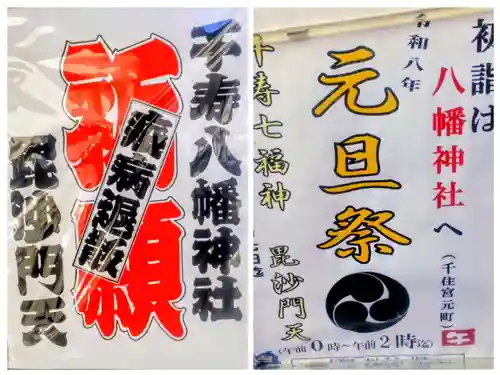 千寿八幡神社
祈願
疾病退散
毘沙門天
初詣は
八幡神社へ
(千住宮元町)
令和八年
元旦祭
(午前0時〜午前2時迄)
千寿七福神
毘沙門天